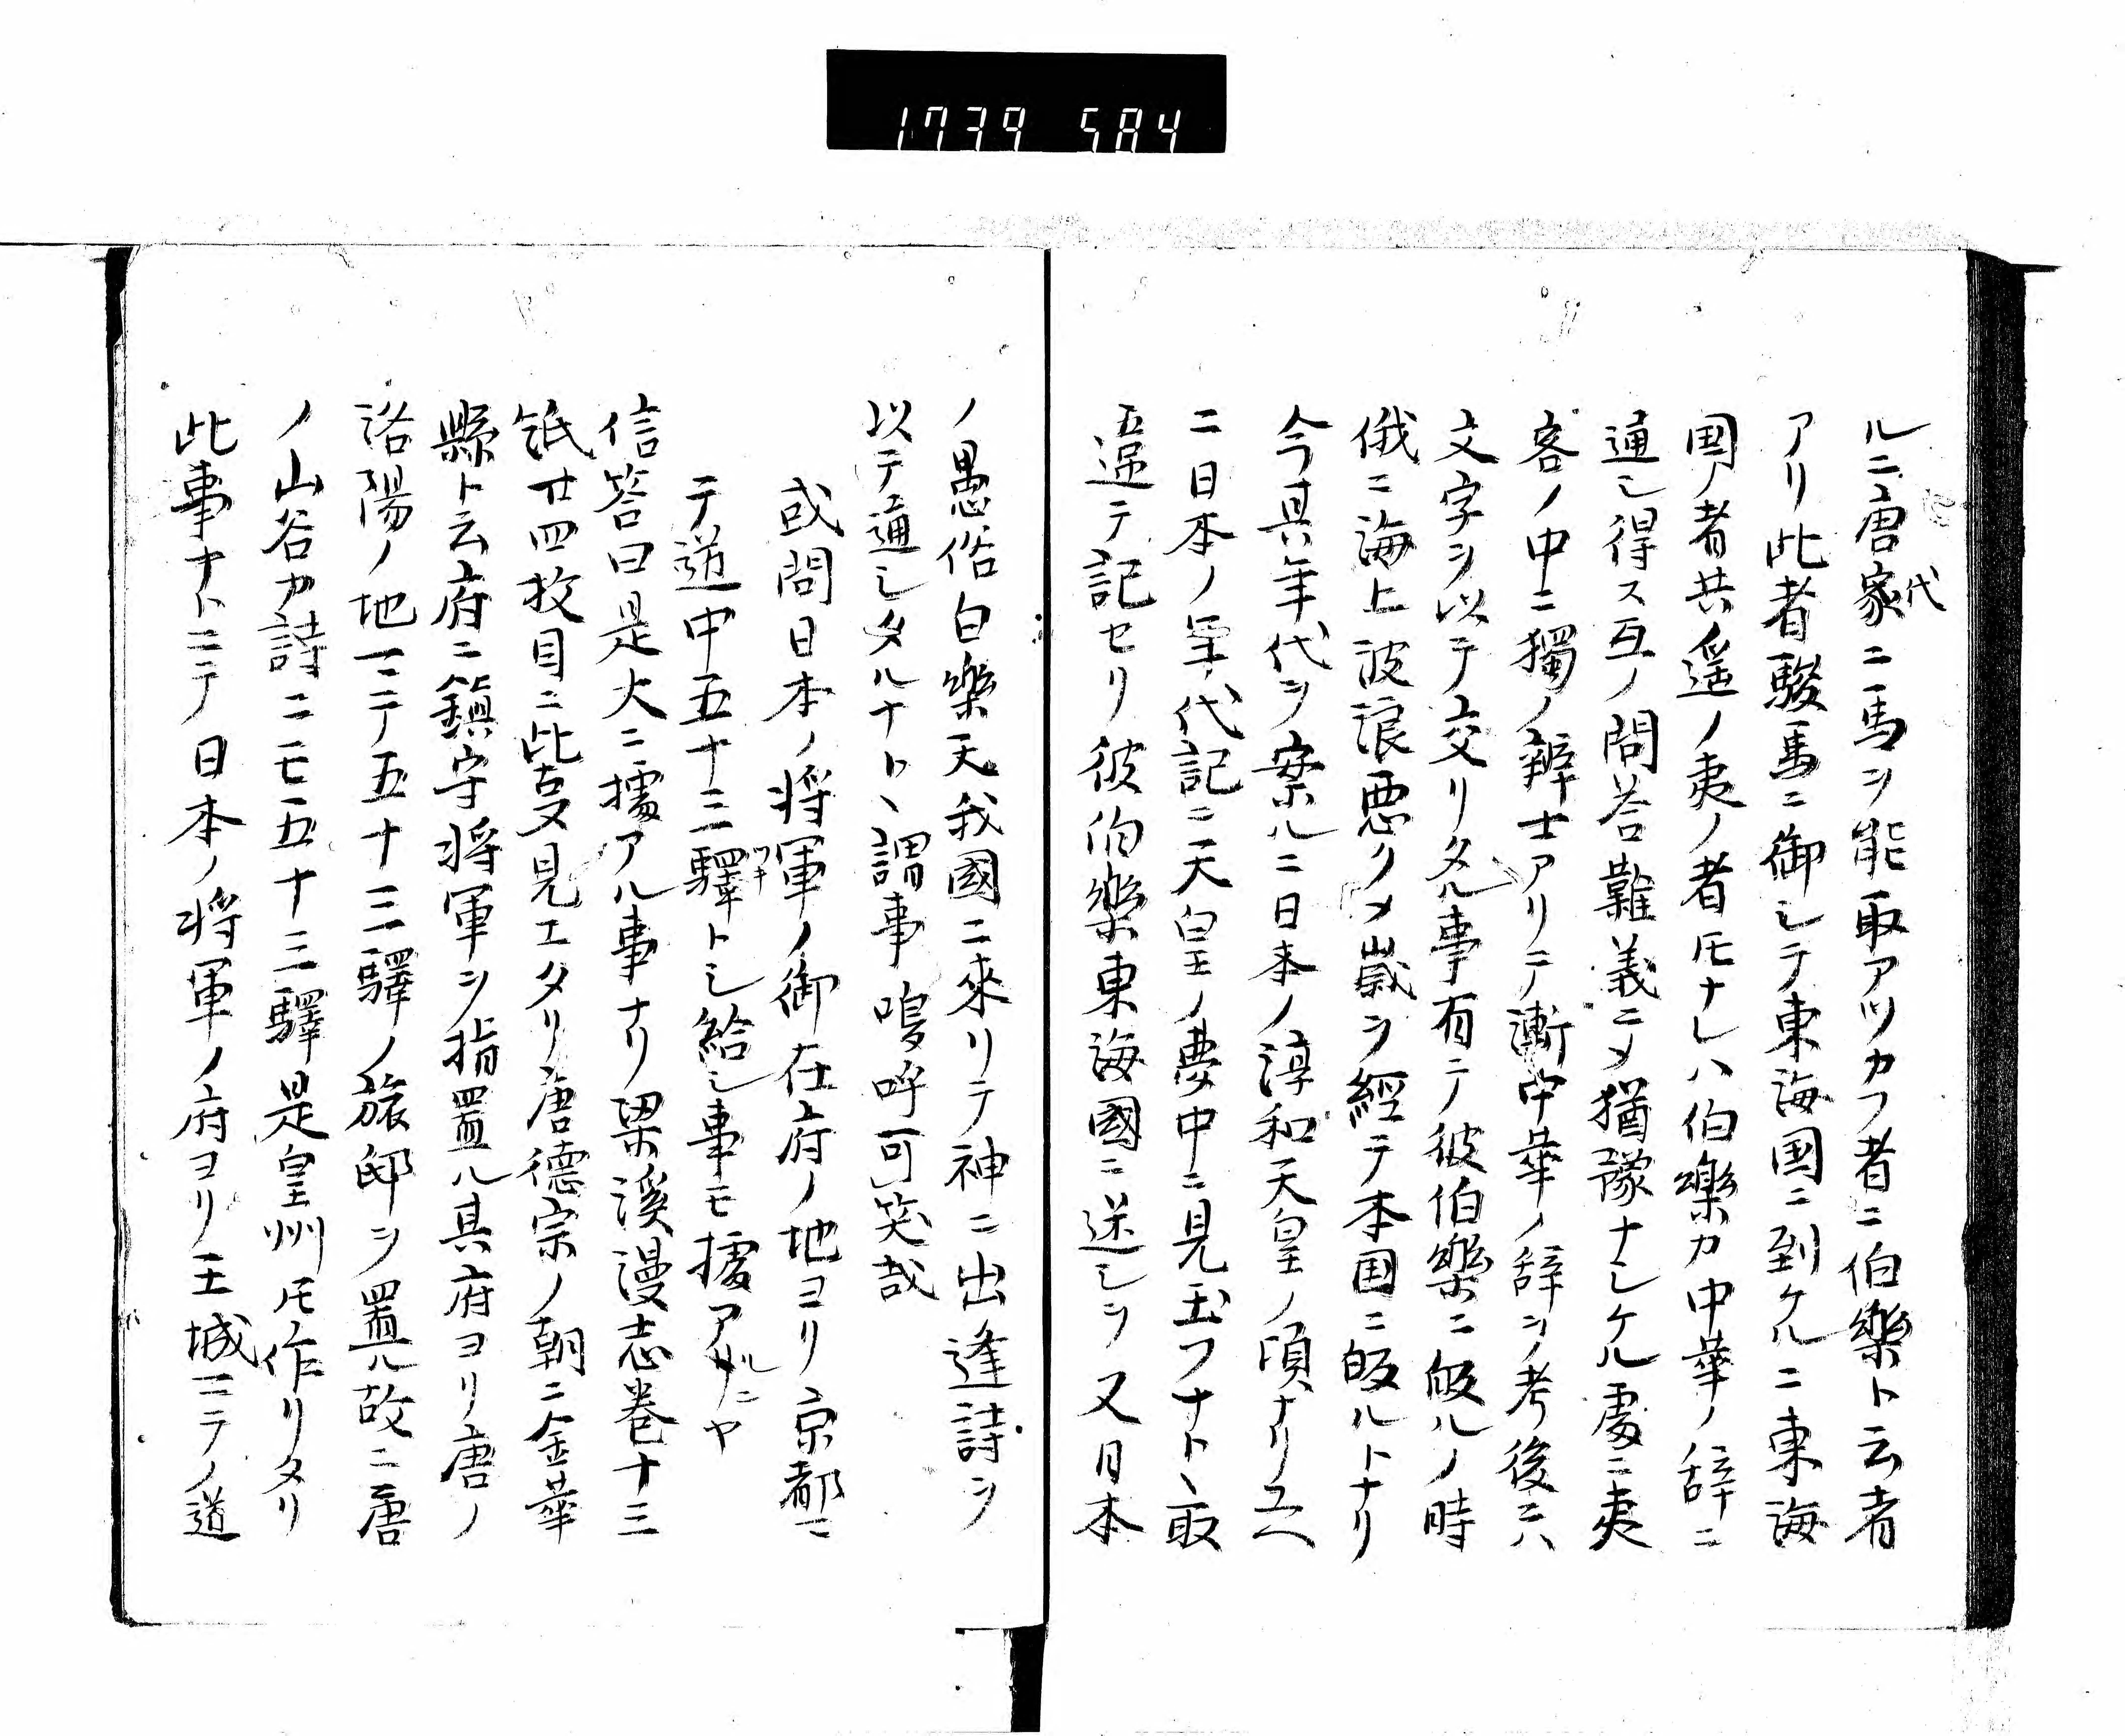 1739 584
ルニ唐家代ニ馬ヲ能取アツカフ者ニ伯樂ト云者
アリ此者駿馬ニ御シテ東海国ニ到ケルニ東海
国ノ者共遥ノ夷ノ者𪜈ナレハ伯樂カ中華ノ辞ニ
通シ得ス互ノ問答難義ニメ猶豫ナシケル處ニ夷
客ノ中ニ獨ノ辨士アリテ漸中華ノ辞ヲ考後ニハ
文字ヲ以テ交リタル事有テ彼伯樂ニ皈ルノ時
俄ニ海上波浪悪クメ歳ヲ經テ本国ニ皈ルトナリ
今其年代ヲ案ルニ日本ノ淳和天皇ノ頃ナリユヘ
ニ日本ノ年代記ニ天皇ノ夢中ニ見玉フナト丶取
違テ記セリ彼伯樂東海國ニ送シヲ又日本
ノ愚俗白樂天我國ニ來リテ神ニ出逢詩ヲ
以テ通シタルナト丶謂事嗚呼可笑哉
或問日本ノ将軍ノ御在府ノ地ヨリ京都ニ
テ道中五十三驛トシ給シ事モ據アルニヤ
信答曰是大ニ據アル事ナリ梁溪漫志巻十三
紙廿四枚目ニ此㕝見エタリ唐德宗ノ朝ニ金華
縣ト云府ニ鎮守将軍ヲ指置ル其府ヨリ唐ノ
洛陽ノ地マテ五十三驛ノ旅邸ヲ置ル故ニ唐
ノ山谷カ詩ニモ五十三驛是皇州𪜈作リタリ
此事ナトニテ日本ノ将軍ノ府ヨリ王城マテノ道